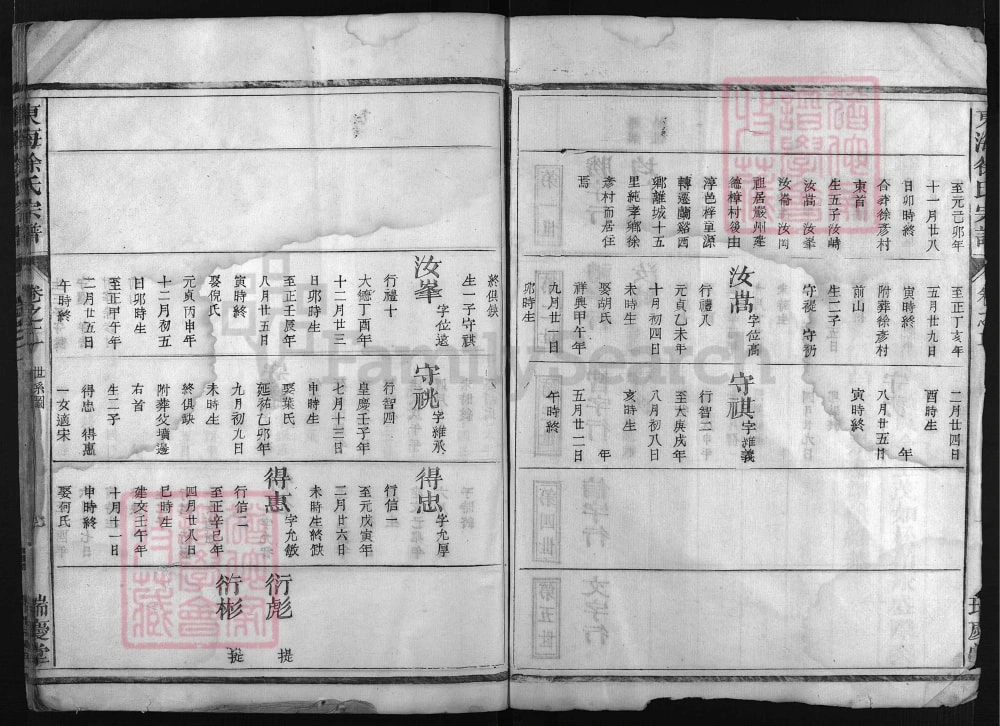 至元己卯年
十一月廿八
日卯時終
合葬徐彦村
東首
生五子汝崎
汝嵩 汝峯
汝崙 汝岡
祖居嚴州建
德樟村後由
淳邑梓童源
轉遷蘭谿西
鄉離城十五
里純孝鄉徐
彦村而居住
焉
至正丁亥年
五月廿九日
寅時終
附葬徐彦村
前山
生二子
守禐 守礽
汝嵩 字位高
行禮八
元貞乙未年
十月初四日
未時生
娶胡氏
祥興甲午年
九月廿一日
卯時生
二月廿四日
酉時生
年
八月廿五日
寅時終
守祺 字維義
行智二
至大庚戌年
八月初八日
亥時生
年
五月廿二日
午時終
東海徐氏宗譜
卷之二
世系圖
瑞慶堂
終俱缺
生一子守祺
汝峯 字位遠
行禮十
大德丁酉年
十二月廿三
日卯時生
至正壬辰年
八月廿五日
寅時終
娶倪氏
元貞丙申年
十二月初五
日卯時生
至正甲午年
二月廿五日
午時終
守祧 字維承
行智四
皇慶壬子年
七月十三日
申時生
娶葉氏
延祐乙卯年
九月初九日
未時生
終俱缺
附葬父墳邊
右首
生二子
得忠 得惠
一女適宋
得忠 字允厚
行信一
至元戊寅年
二月廿六日
未時生終缺
得惠 字允敏
行信二
至正辛巳年
四月廿八日
巳時生
建文壬午年
十月十一日
申時終
娶何氏
衍彪 提
衍彬 提
FamilySearch